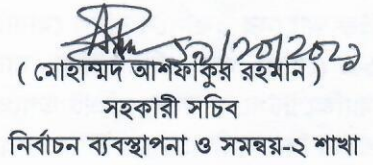 ( মোহাম্মদ আশফাকুর রহমান )
সহকারী সচিব
নির্বাচন ব্যবস্থাপনা ও সমন্বয়-২ শাখা